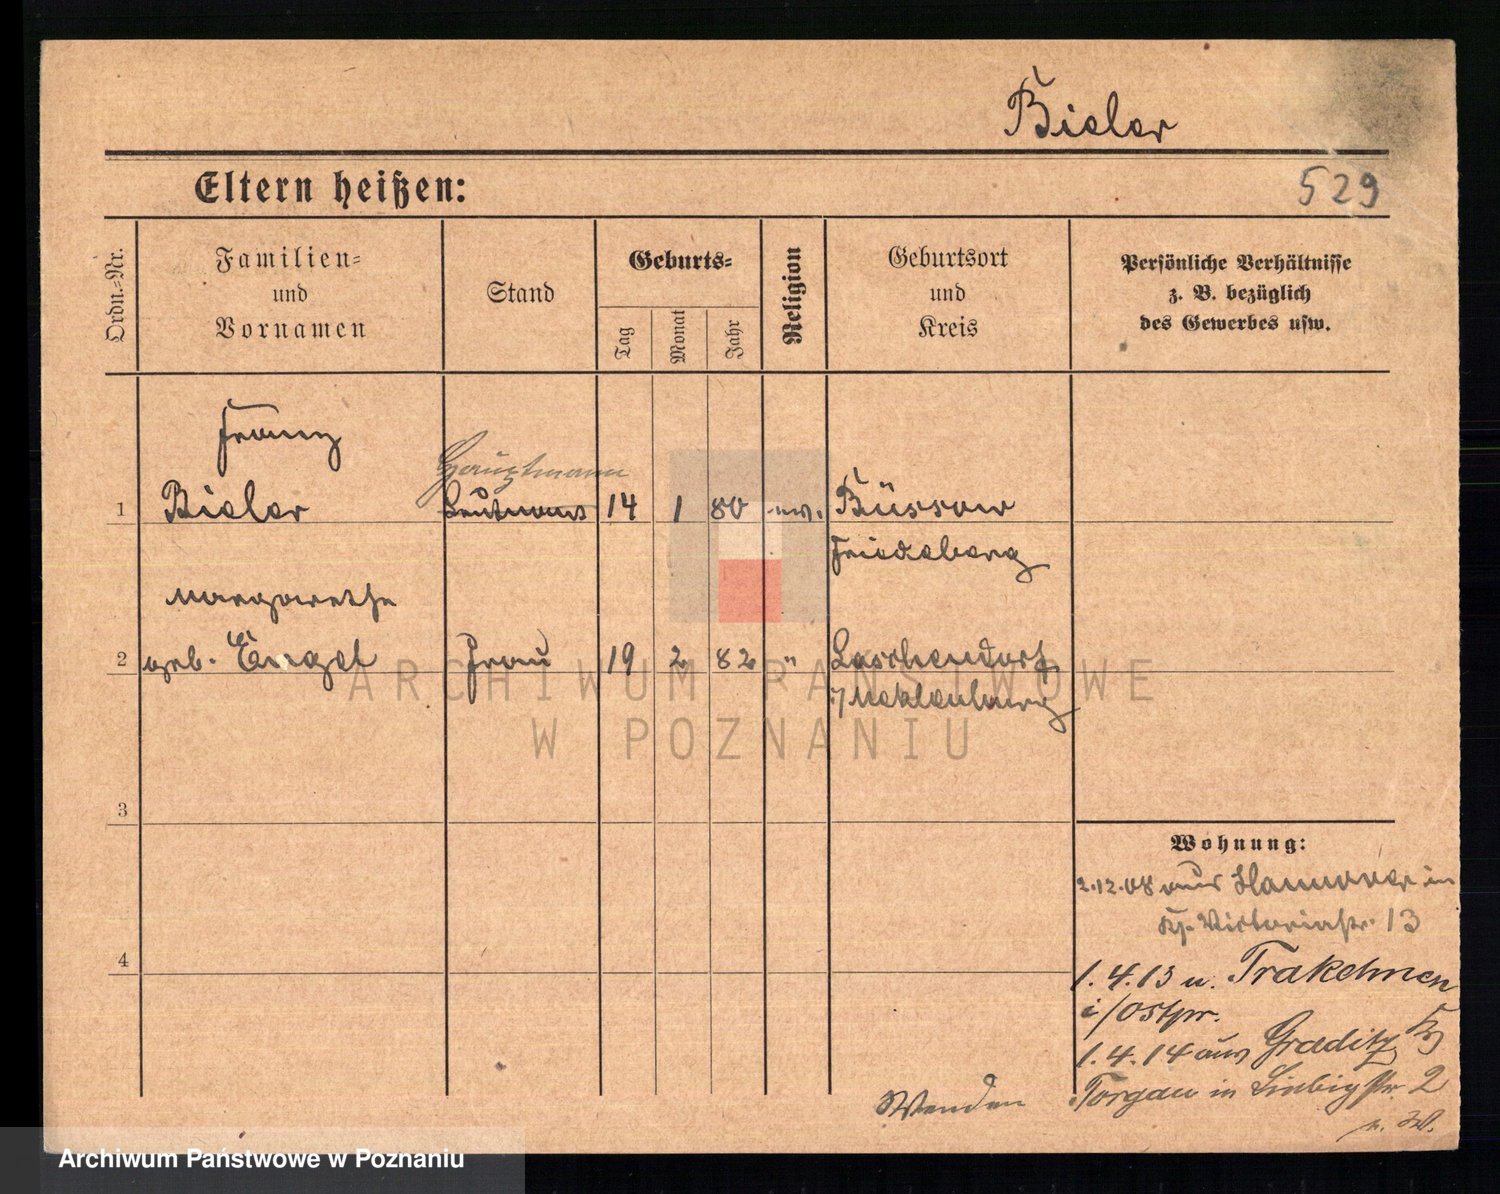 Bieler
Eltern heißen:
529
Ordn.=Nr.
Familien=
und
Vornamen
Stand
Geburts=
Tag
Monat
Jahr
Religion
Geburtsort
und
Kreis
Persönliche Verhältnisse
z. B. bezüglich
des Gewerbes usw.
Franz
Hauptmann
1 Bieler Leutnant 14 1 80 ev. Büssow
Friedeberg
Margarethe
2 geb. Engel Frau 19 2 82 " Laschendorf
i/Meklenburg
3
4
Wohnung:
2.12.08 aus Hannover in
Victoriastr. 13
1.4.13 n. Trakehnen
i/Ostpr.
1.4.14 aus Graditz Kr
Torgau in Liebigstr. 2
n. W.
Wenden
ARCHIWUM PAŃSTWOWE
W POZNANIU
Archiwum Państwowe w Poznaniu